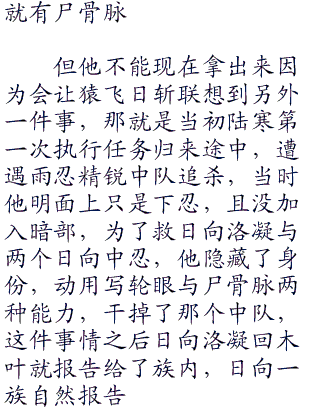 就有尸骨脉
但他不能现在拿出来因
为会让猿飞日斩联想到另外
一件事，那就是当初陆寒第
一次执行任务归来途中，遭
遇雨忍精锐中队追杀，当时
他明面上只是下忍，且没加
入暗部，为了救日向洛凝与
两个日向中忍，他隐藏了身
份，动用写轮眼与尸骨脉两
种能力，干掉了那个中队，
这件事情之后日向洛凝回木
叶就报告给了族内，日向一
族自然报告